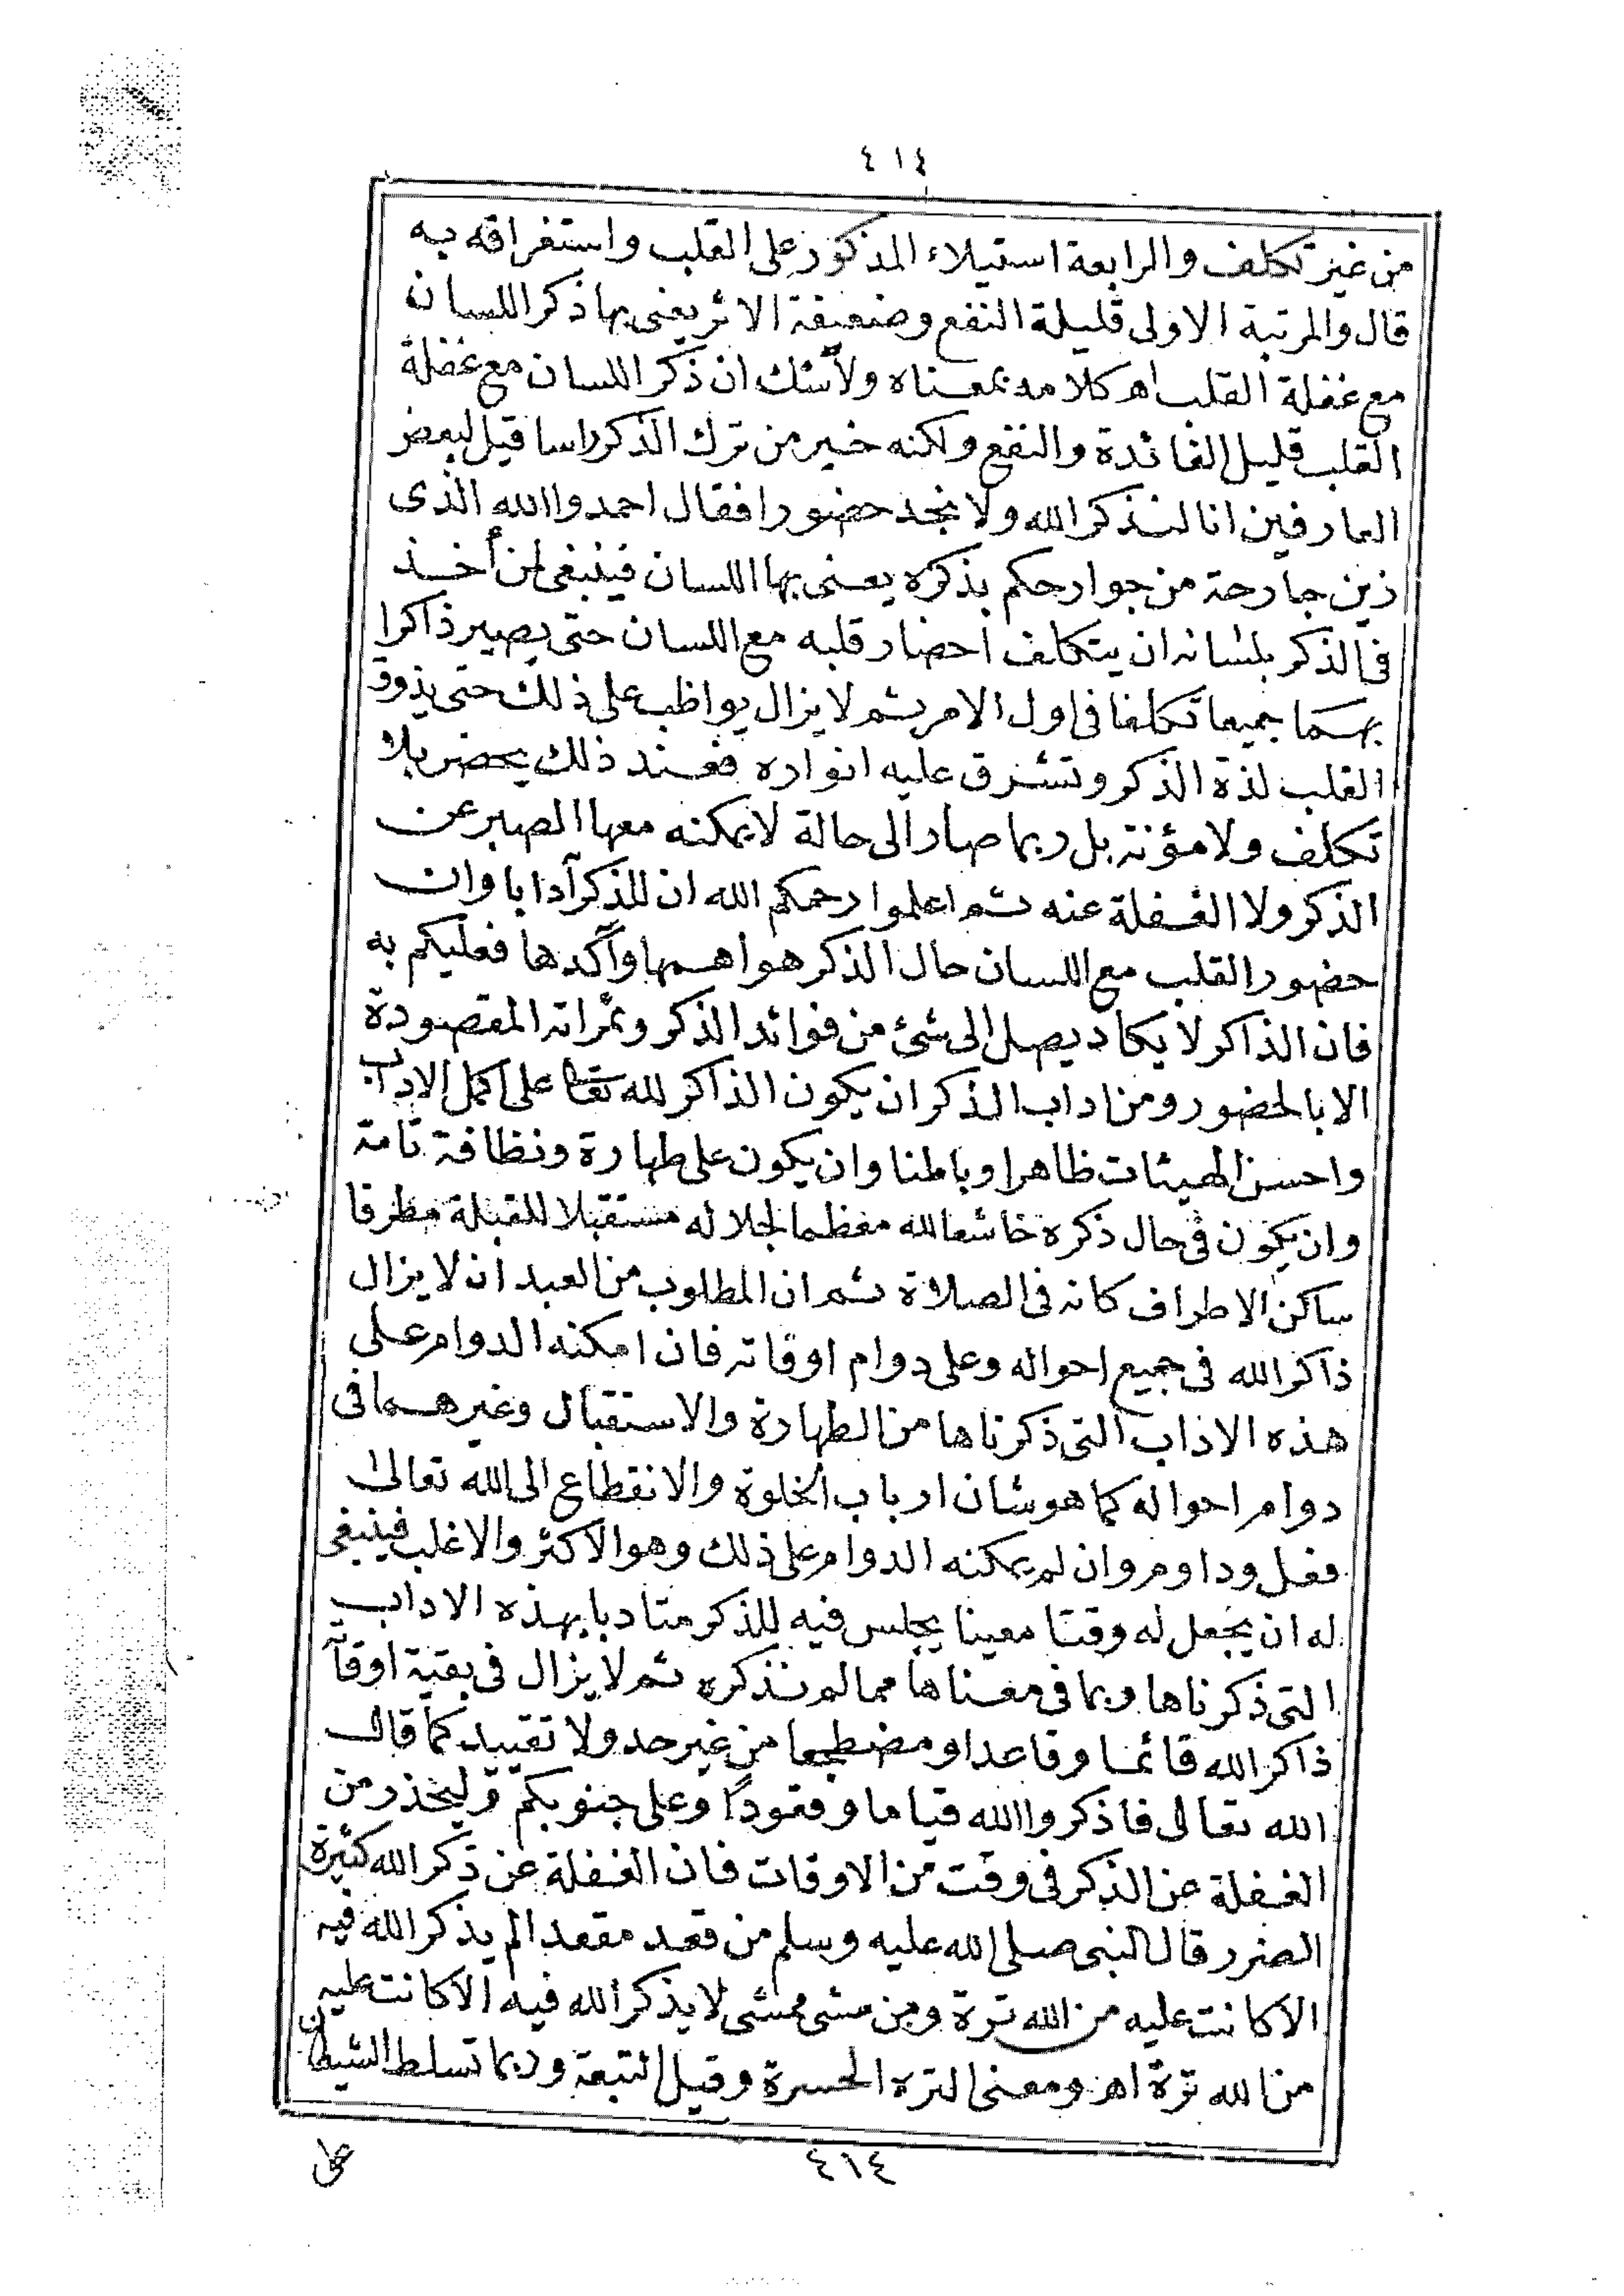 ٤١٤
من غير تكلف والرابعة استيلاء المذكور على القلب واستغراقه به
قال والمرتبة الاولى قليلة النفع وضعيفة الاثر يعنى بها ذكر اللسان
مع غفلة القلب اه كلامه بمعناه ولاشك ان ذكر اللسان مع غفلة
القلب قليل الفائدة والنفع ولكنه خير من ترك الذكر راسا قيل لبعض
العارفين انا لنذكر الله ولا نجد حضورا فقال احمدوا الله الذى
زين جارحة من جوارحكم بذكره يعنى بها اللسان فينبغى لمن أخذ
فى الذكر بلسانه ان يتكلف احضار قلبه مع اللسان حتى يصير ذاكرا
بهما جميعا تكلفا فى اول الامر ثم لا يزال يواظب على ذلك حتى يذوق
القلب لذة الذكر وتشرق عليه انواره فعند ذلك يحضر بلا
تكلف ولا مؤنة بل ربما صار الى حالة لا يمكنه معها الصبر عن
الذكر ولا الغفلة عنه ثم اعلموا رحمكم الله ان للذكر آدابا وان
حضور القلب مع اللسان حال الذكر هو اهمها وآكدها فعليكم به
فان الذاكر لا يكاد يصل الى شئ من فوائد الذكر وثمراته المقصودة
الا بالحضور ومن اداب الذكر ان يكون الذاكر لله تعا على اكمل الاداب
واحسن الهيئات ظاهرا وباطنا وان يكون على طهارة ونظافة تامة
وان يكون فى حال ذكره خاشعا لله معظما لجلاله مستقبلا للقبلة مطرقا
ساكن الاطراف كانه فى الصلاة ثم ان المطلوب من العبد ان لا يزال
ذاكر الله فى جميع احواله وعلى دوام اوقاته فان امكنه الدوام على
هذه الاداب التى ذكرناها من الطهارة والاستقبال وغيرهما فى
دوام احواله كما هو شان ارباب الخلوة والانقطاع الى الله تعالى
فعل وداوم وان لم يمكنه الدوام على ذلك وهو الاكثر والاغلب فينبغى
له ان يجعل له وقتا معينا يجلس فيه للذكر متادبا بهذه الاداب
التى ذكرناها وبما فى معناها مما لم نذكره ثم لا يزال فى بقية اوقاته
ذاكر الله قائما وقاعدا ومضطجعا من غير حد ولا تقييد كما قال
الله تعالى فاذكروا الله قياما وقعودًا وعلى جنوبكم وليحذر من
الغفلة عن الذكر فى وقت من الاوقات فان الغفلة عن ذكر الله كثيرة
الضرر قال النبى صلى الله عليه وسلم من قعد مقعدا لم يذكر الله فيه
الا كانت عليه من الله ترة ومن مشى ممشى لا يذكر الله فيه الا كانت عليه
من الله ترة اه ومعنى التره الحسرة وقيل التبعة وربما تسلط الشيطان
٤١٤
على